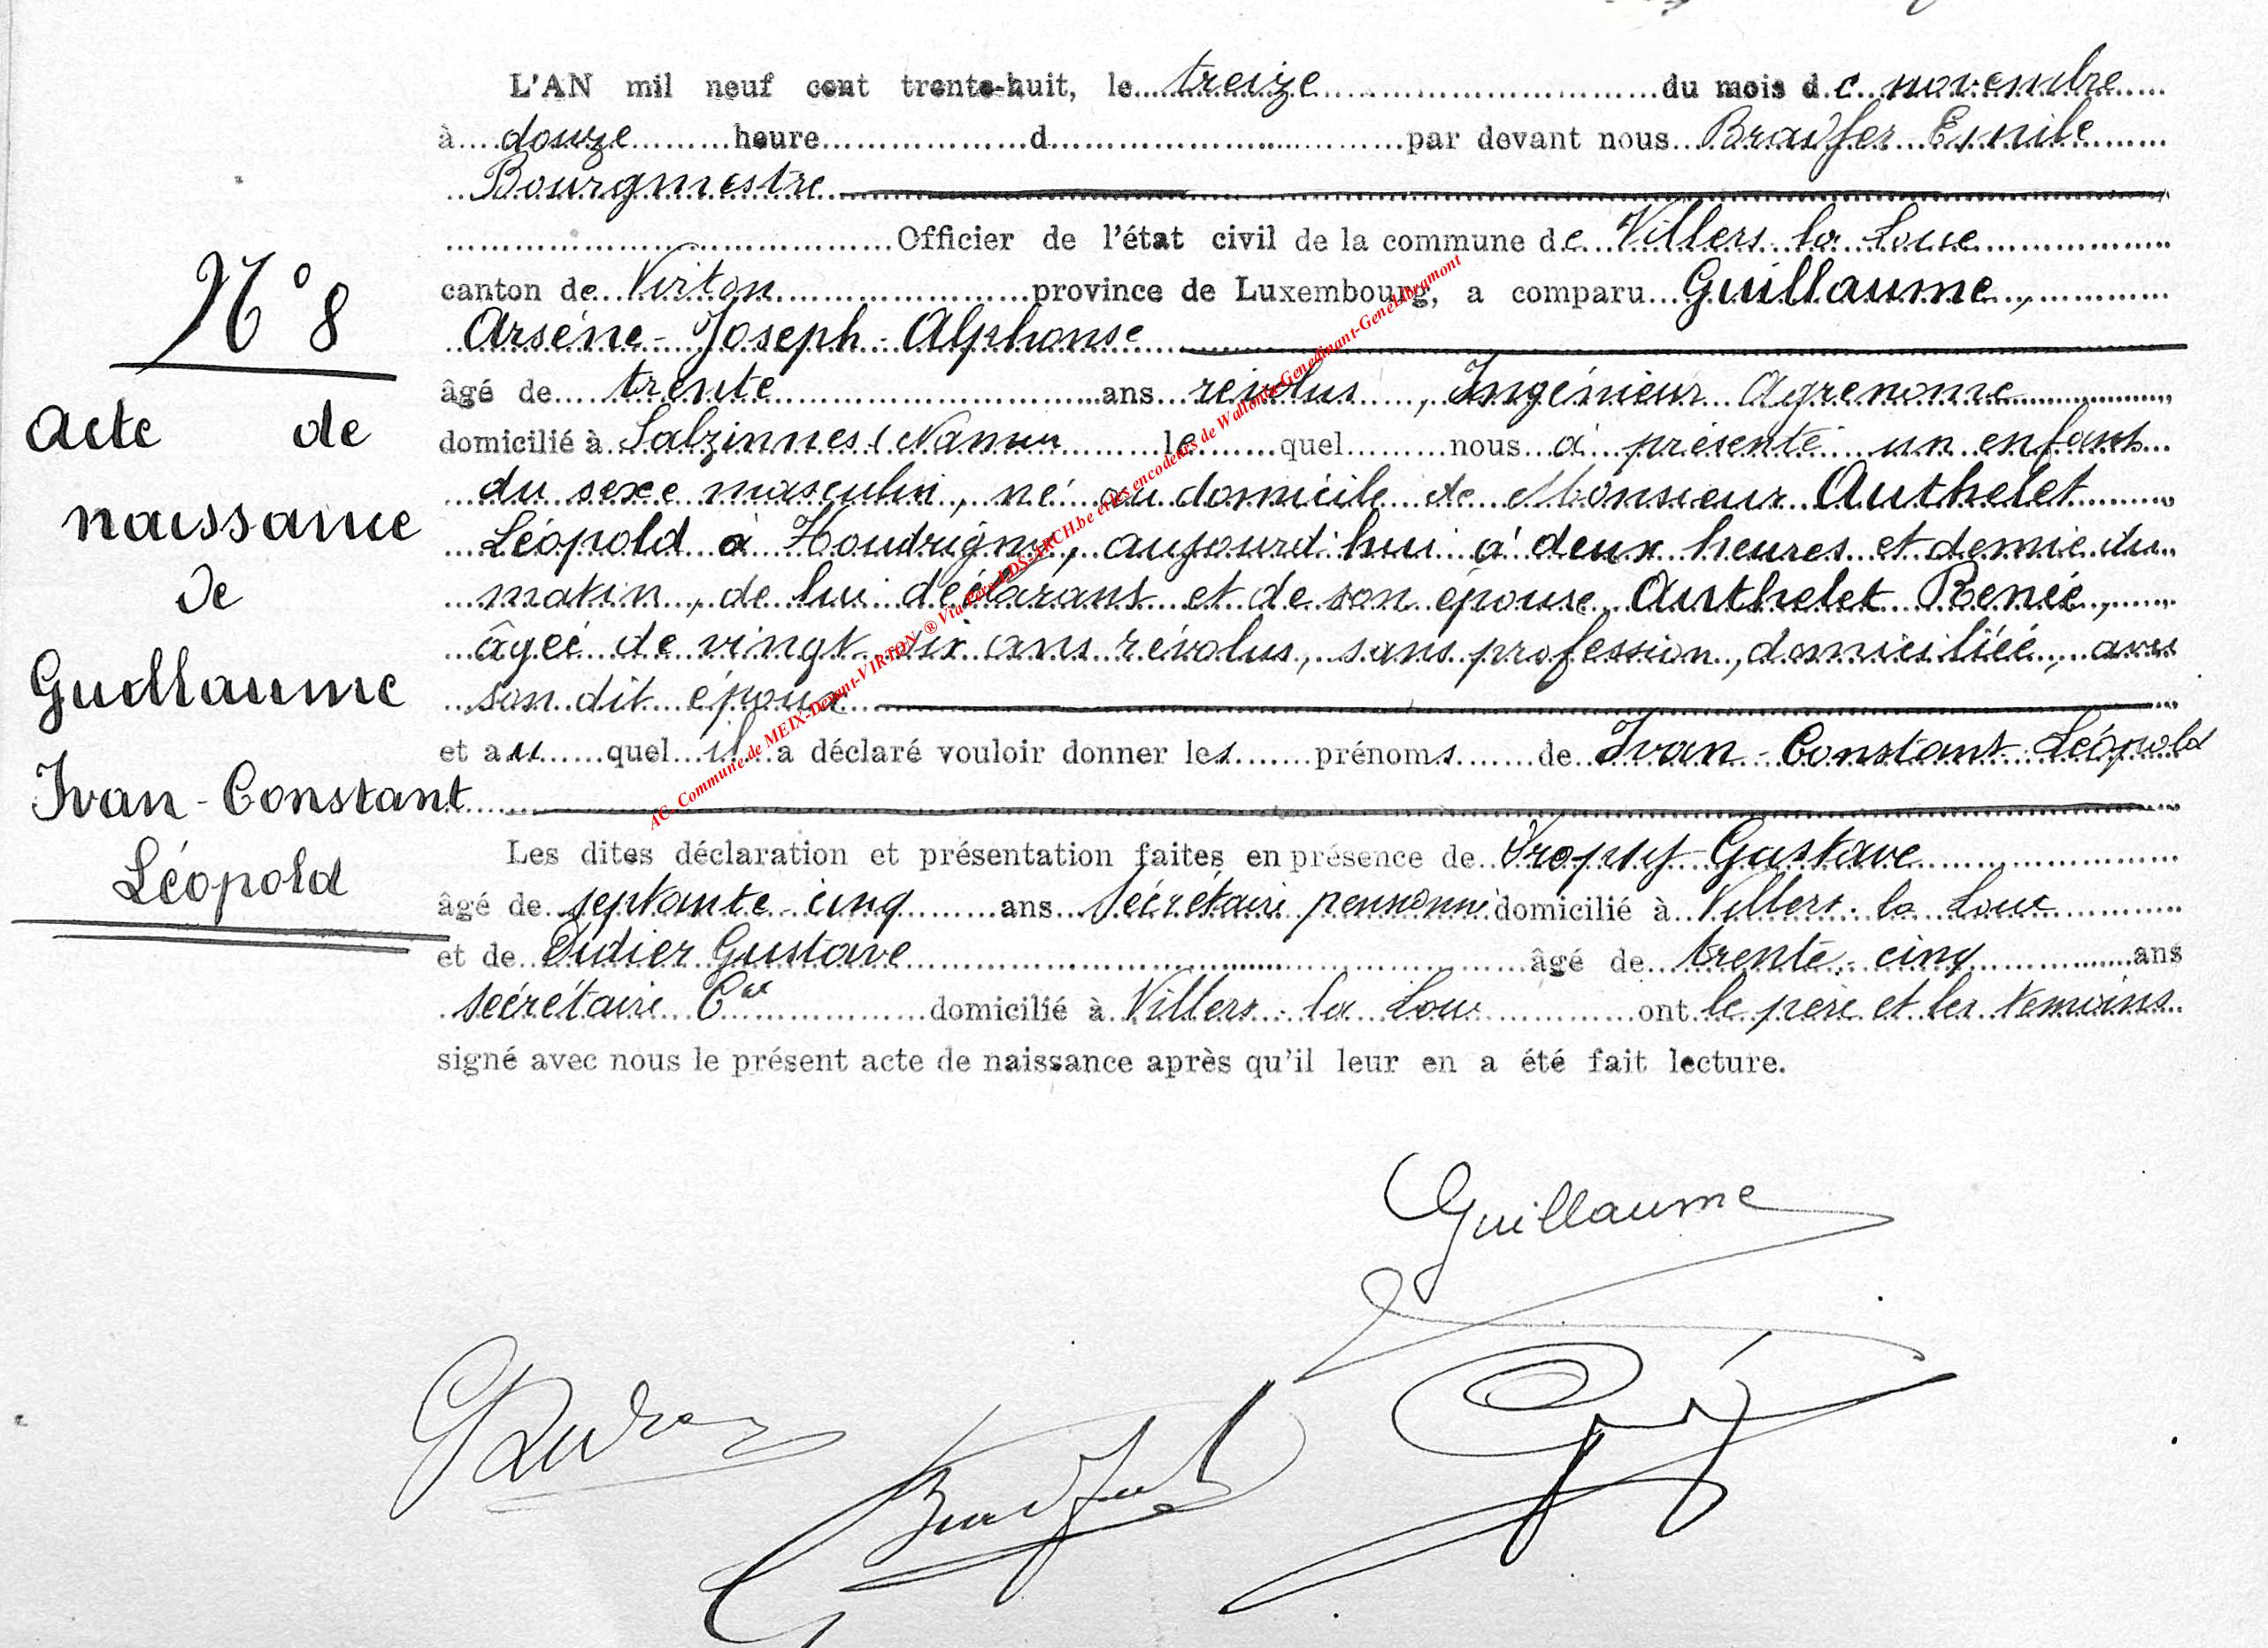 L'AN mil neuf cent trente-huit, le treize du mois de novembre
à douze heure d par devant nous Bradfer Emile
Bourgmestre
Officier de l'état civil de la commune de Villers la Loue
canton de Virton province de Luxembourg, a comparu Guillaume,
Arsène-Joseph-Alphonse
âgé de trente ans révolus, Ingénieur Agrenome
domicilié à Salzinnes (Namur le quel nous a présenté un enfant
du sexe masculin, né au domicile de Monsieur Authelet
Léopold à Houdrigny, aujourd'hui à deux heures et demie du
matin, de lui déclarant et de son épouse Authelet Renée,
âgée de vingt six ans révolus, sans profession, domiciliée, avec
son dit époux
et au quel il a déclaré vouloir donner les prénoms de Ivan-Constant-Léopold
Les dites déclaration et présentation faites en présence de Gustave
âgé de septante-cinq ans secrétaire pensionné domicilié à Villers-la Loue
et de Didier Gustave âgé de trente-cinq ans
secrétaire Cal domicilié à Villers-la Loue ont le père et les témoins
signé avec nous le présent acte de naissance après qu'il leur en a été fait lecture.
N° 8
Acte de
naissance
de
Guillaume
Ivan-Constant
Léopold
AC. Commune de MEIX-Devant-VIRTON ® Via Pers-LDS-ARCH.be et les encodeurs de Wallonie-Genedinant-GeneLibramont
Guillaume
Bradfer